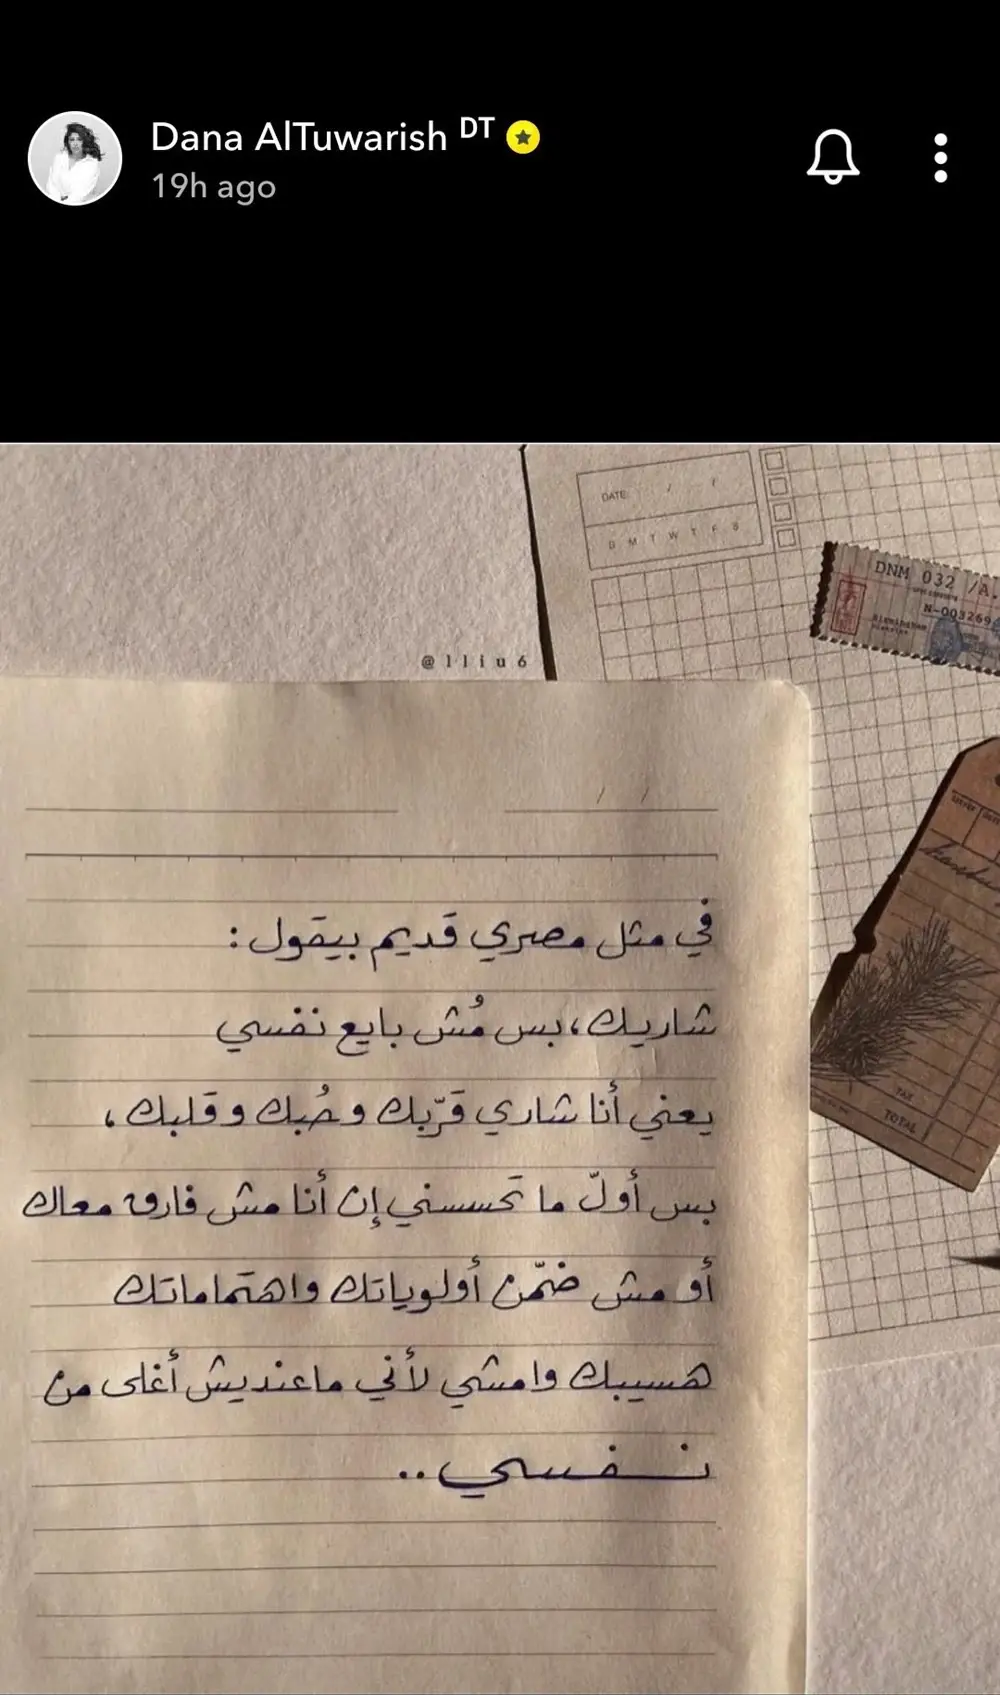 Dana AlTuwarish DT
19h ago
DATE: / /
S M T W T F S
DNM 032 /A.
N-0032696
@lliu6
/ /
في مثل مصري قديم بيقول :
شاريك، بس مُش بايع نفسي
يعني أنا شاري قرّبك وحُبك وقلبك ،
بس أولّ ما تحسسني إن أنا مش فارق معاك
أو مش ضمّن أولوياتك واهتماماتك
هسيبك وامشي لأني ماعنديش أغلى من
نفسي ..
TAX
TOTAL